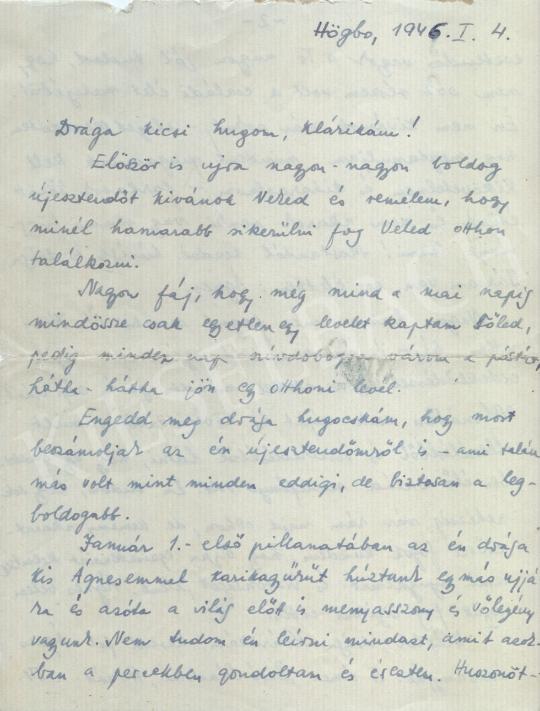 Högbo, 1946. I. 4.
Drága kicsi hugom, Klárikám!
Először is ujra nagyon-nagyon boldog
újesztendőt kivánok Neked és remélem, hogy
minél hamarabb sikerülni fog Veled otthon
találkozni.
Nagyon fáj, hogy még mind a mai napig
mindössze csak egyetlenegy levelet kaptam Tőled,
pedig minden nap szívdobogva várom a postást,
hátha-hátha jön egy otthoni levél.
Engedd meg drága hugocskám, hogy most
beszámoljak az én újesztendőmről is - ami talán
más volt mint minden eddigi, de biztosan a leg-
boldogabb.
Január 1.- első pillanatában az én drága
kis Ágnesemmel karikagyűrüt húztunk egymás ujjá-
ra és azóta a világ előtt is menyasszony és vőlegény
vagyunk. Nem tudom én leírni mindazt, amit azok-
ban a percekben gondoltam és éreztem. Huszonöt-